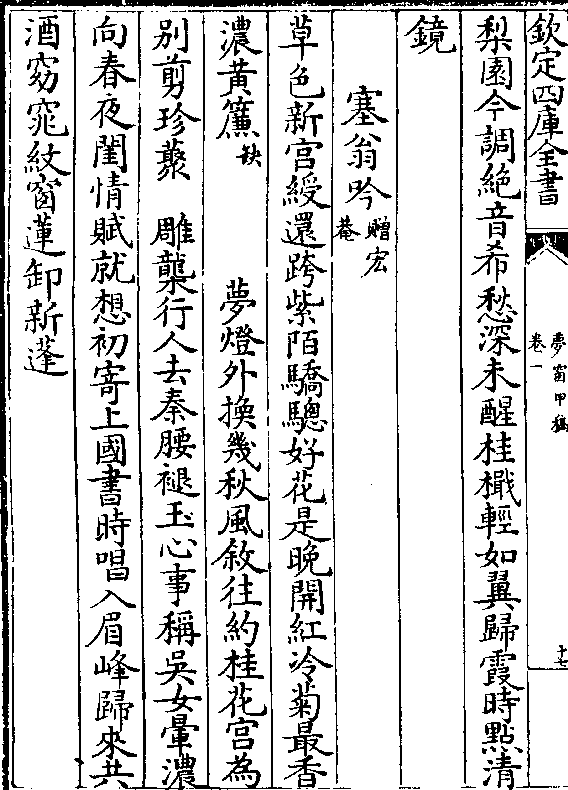 欽定四庫全書
夢窗甲稿
卷一
十七
梨園今調絶音希愁深未醒桂檝輕如翼歸霞時㸃清
鏡
塞翁吟贈宏菴
草色新宫綬還跨紫陌驕驄好花是晩開紅冷菊最香
濃黄簾缺 夢燈外換幾秋風敘往約桂花宫為
别剪珍藂 雕櫳行人去秦腰褪玉心事稱吳女暈濃
向春夜閨情賦就想初寄上國書時唱入眉峰歸來共
酒窈窕紋窗蓮卸新蓬